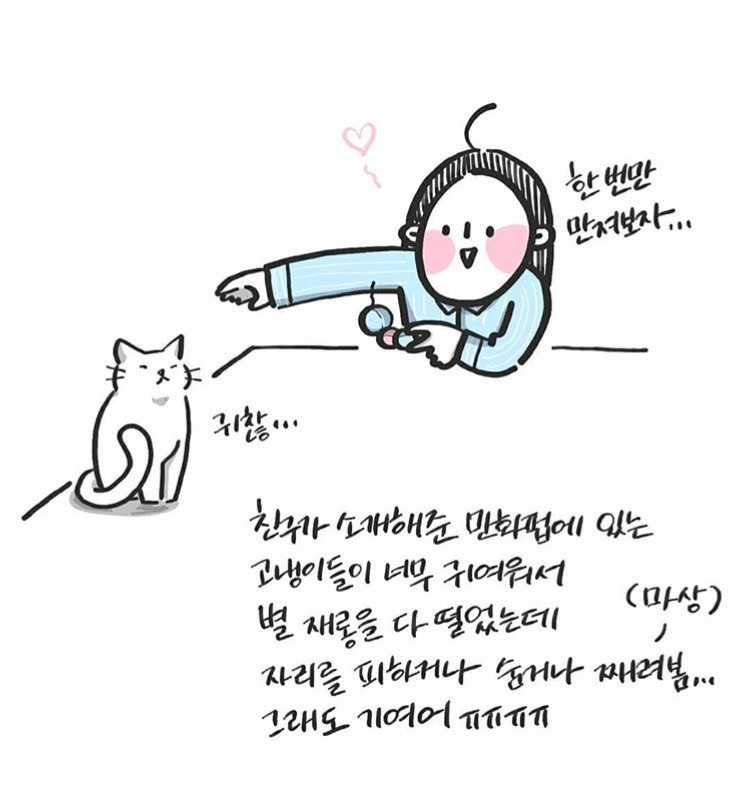 한 번만
만져보자...
귀찮...
친구가 소개해준 만화펍에 있는
고냉이들이 너무 귀여워서
별 재롱을 다 떨었는데
(마상)
자리를 피하거나 숨거나 째려봄...
그래도 기여어 ㅠㅠㅠㅠ